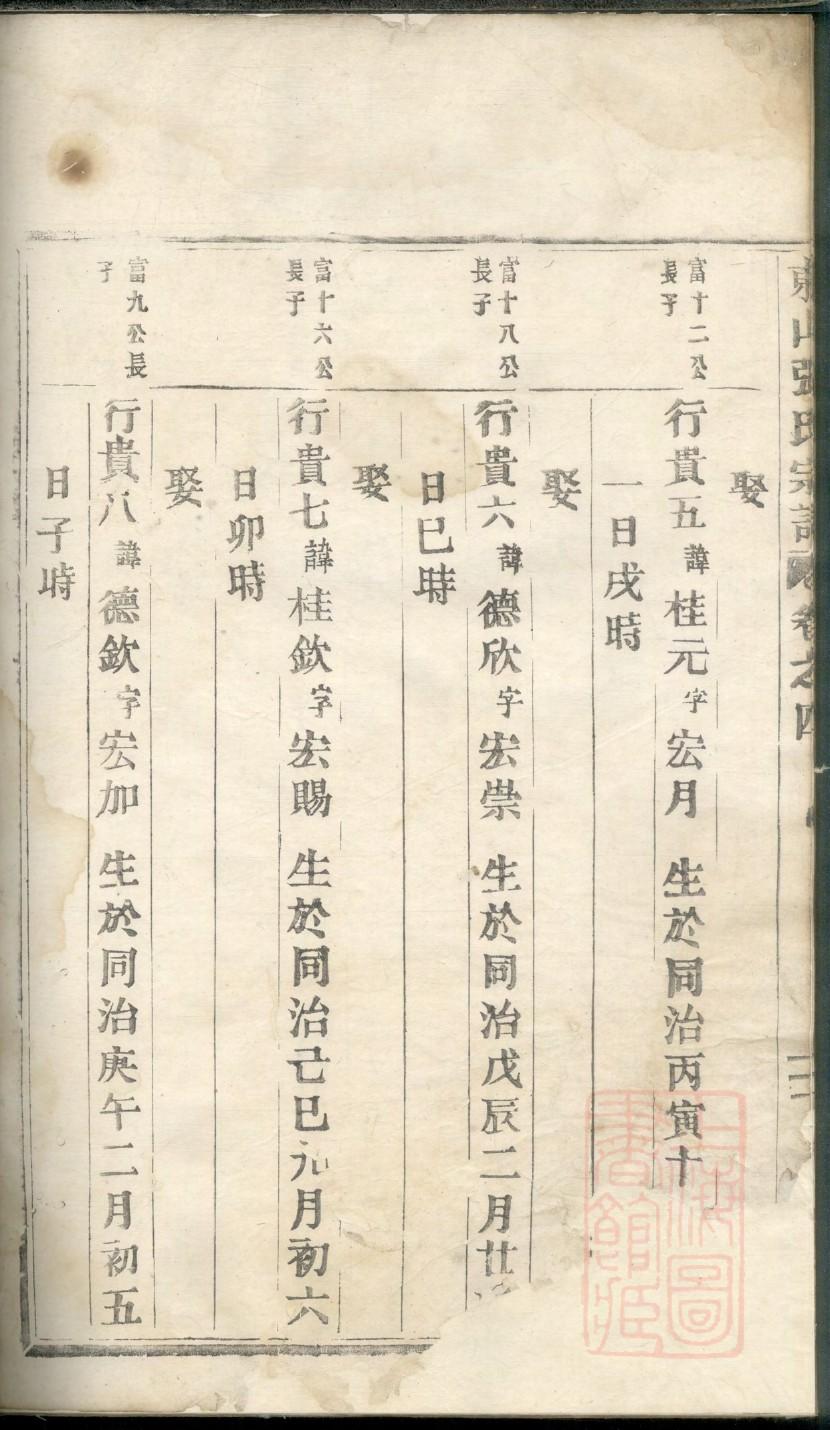 山張氏宗譜 卷之四
娶
富十二公
長子
行貴五諱桂元字宏月 生於同治丙寅十
一日戌時
娶
富十八公
長子
行貴六諱德欣字宏崇 生於同治戊辰二月廿
日巳時
娶
富十六公
長子
行貴七諱桂欽字宏賜 生於同治己巳元月初六
日卯時
娶
富九公長
子
行貴八諱德欽字宏加 生於同治庚午二月初五
日子時
上海圖
書館藏